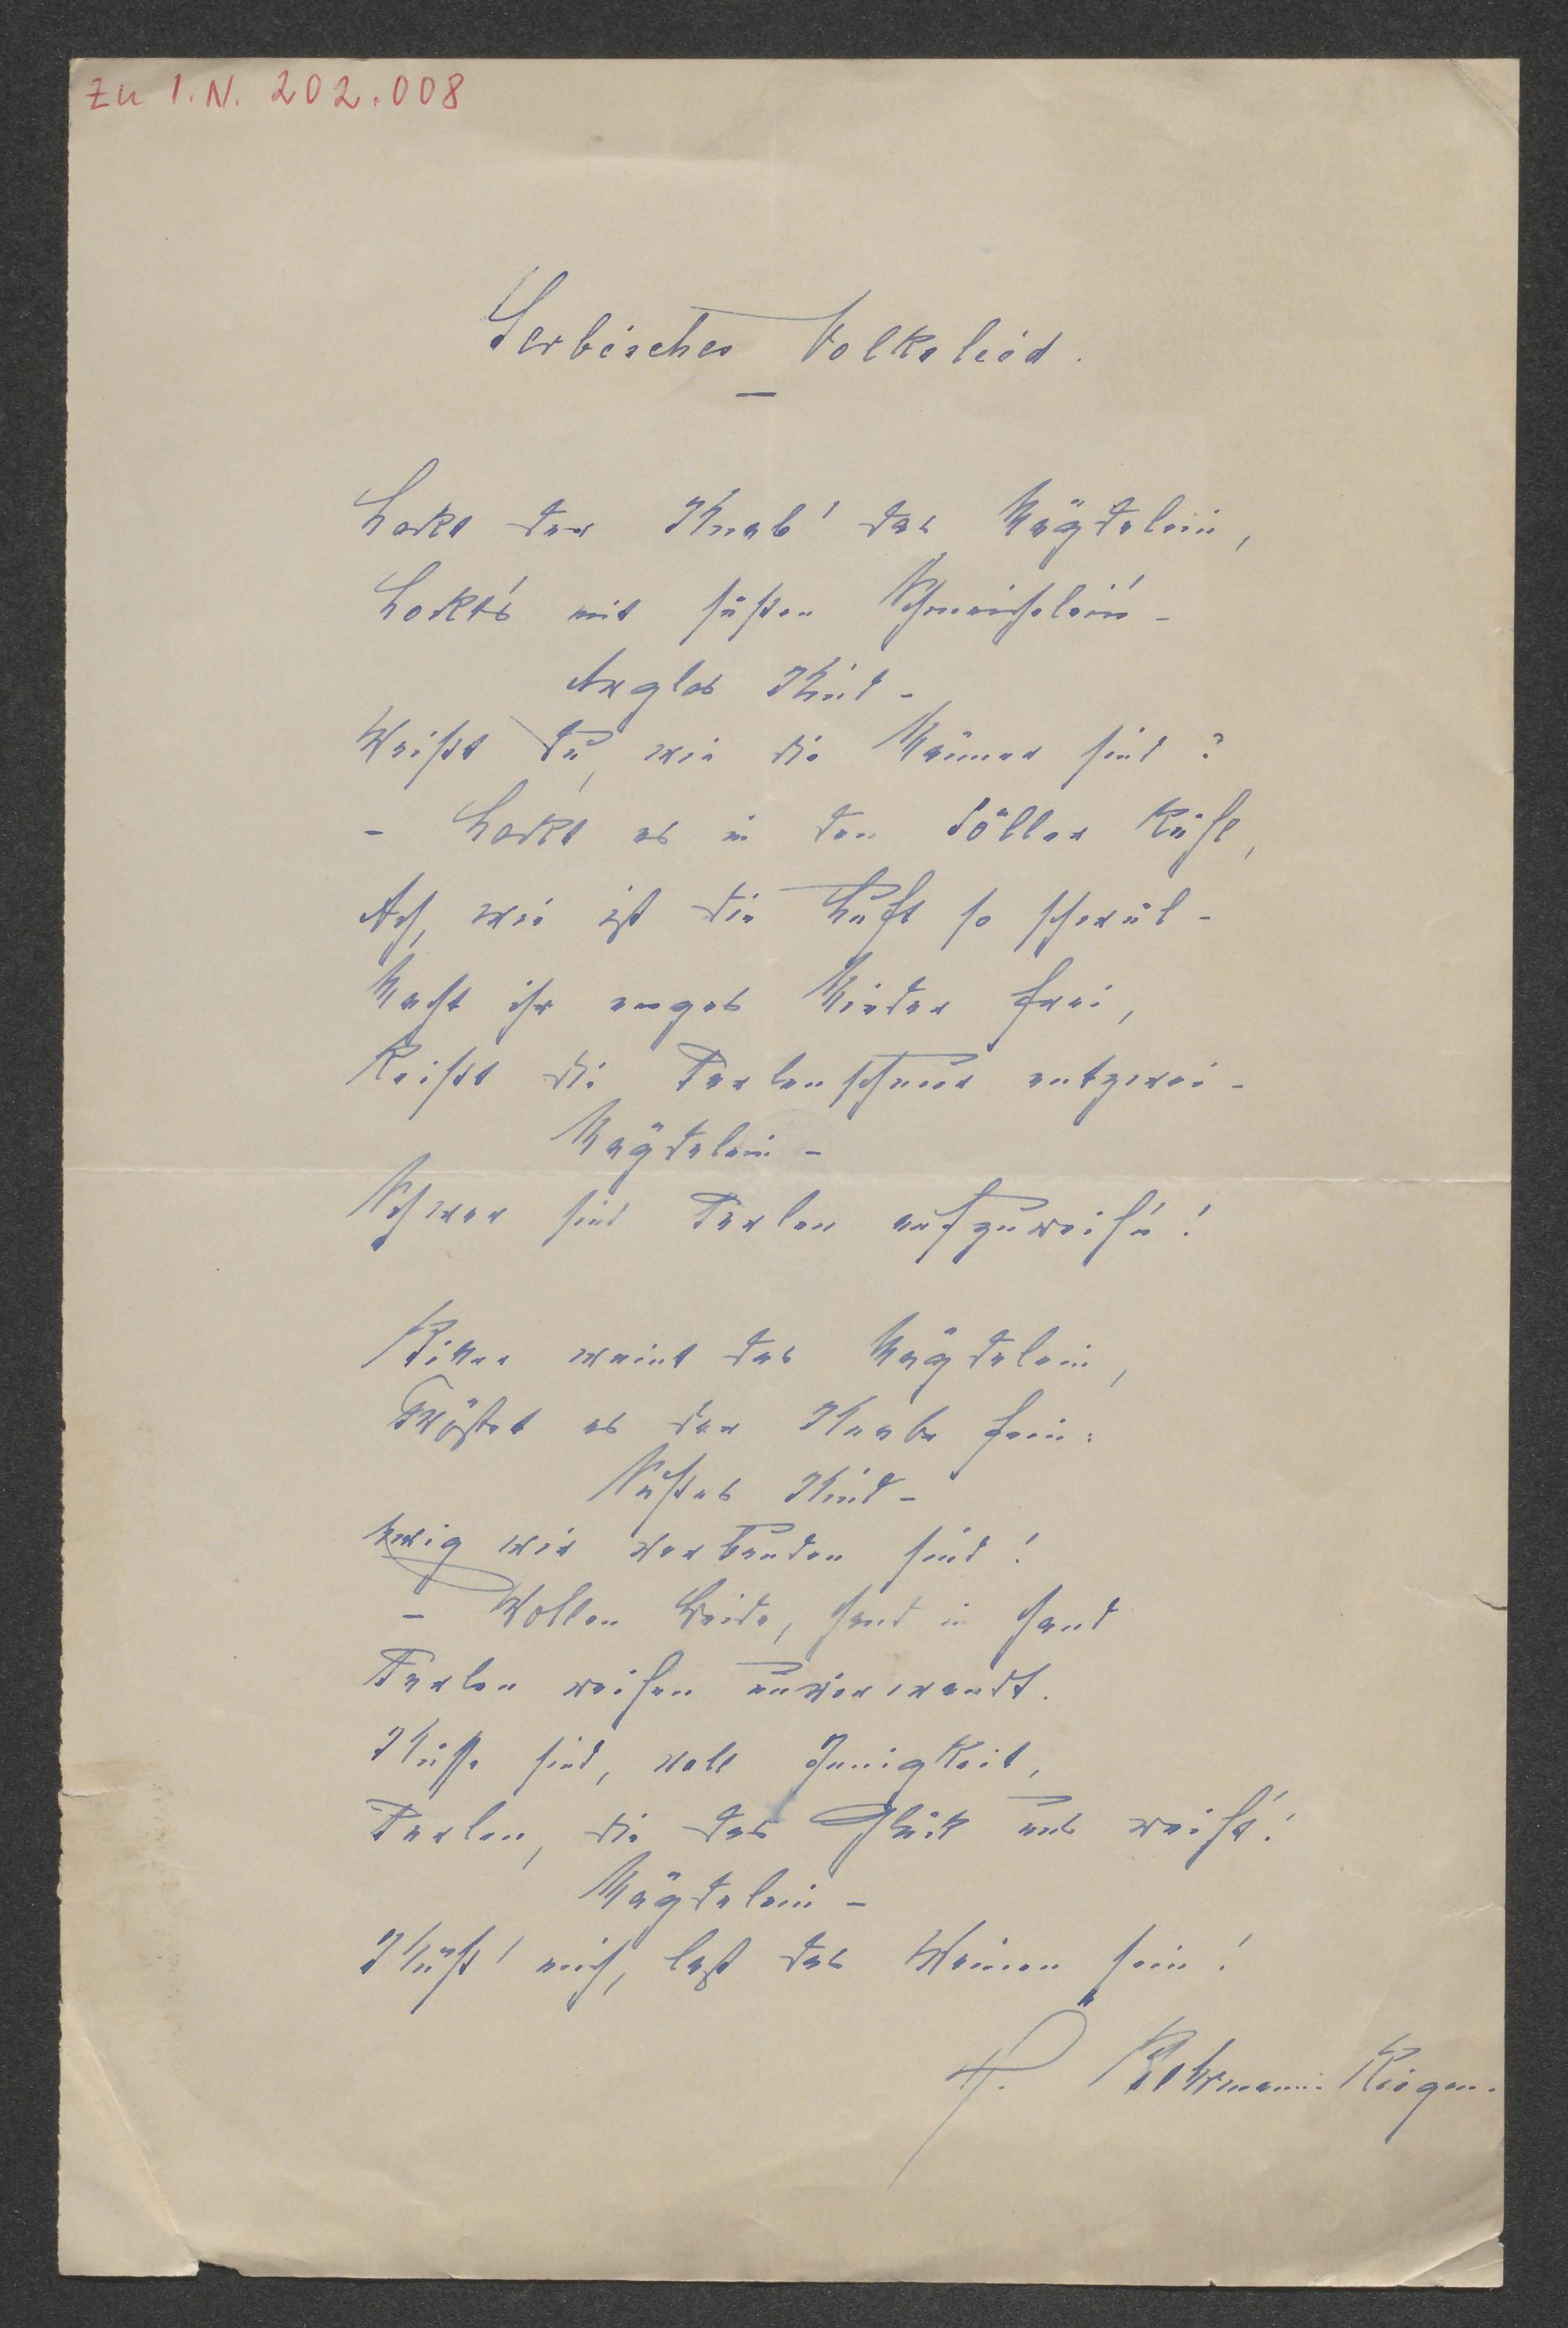 Zu I.N. 202.008
Serbisches Volkslied.
Lockt der Knab' das Mägdelein,
Lockt's mit süßen Schmeichelein' -
Arglos Kind -
Weißt Du, wie die Männer sind?
- Lockt es in den Söller kühl,
Ach, wie ist die Luft so schwül -
Macht ihr enges Mieder frei,
Reißt die Perlenschnur entzwei -
Mägdelein -
Schwer sind Perlen aufzureih'n!
Bitter weint das Mägdelein,
Tröstet es der Knabe fein:
Süßes Kind -
Ewig wir verbunden sind!
- Wollen Beide, Hand in Hand
Perlen reihen unverwandt.
Küsse sind, voll Innigkeit,
Perlen, die das Glück uns reiht!
Mägdelein -
Küß' mich, laß das Weinen sein!